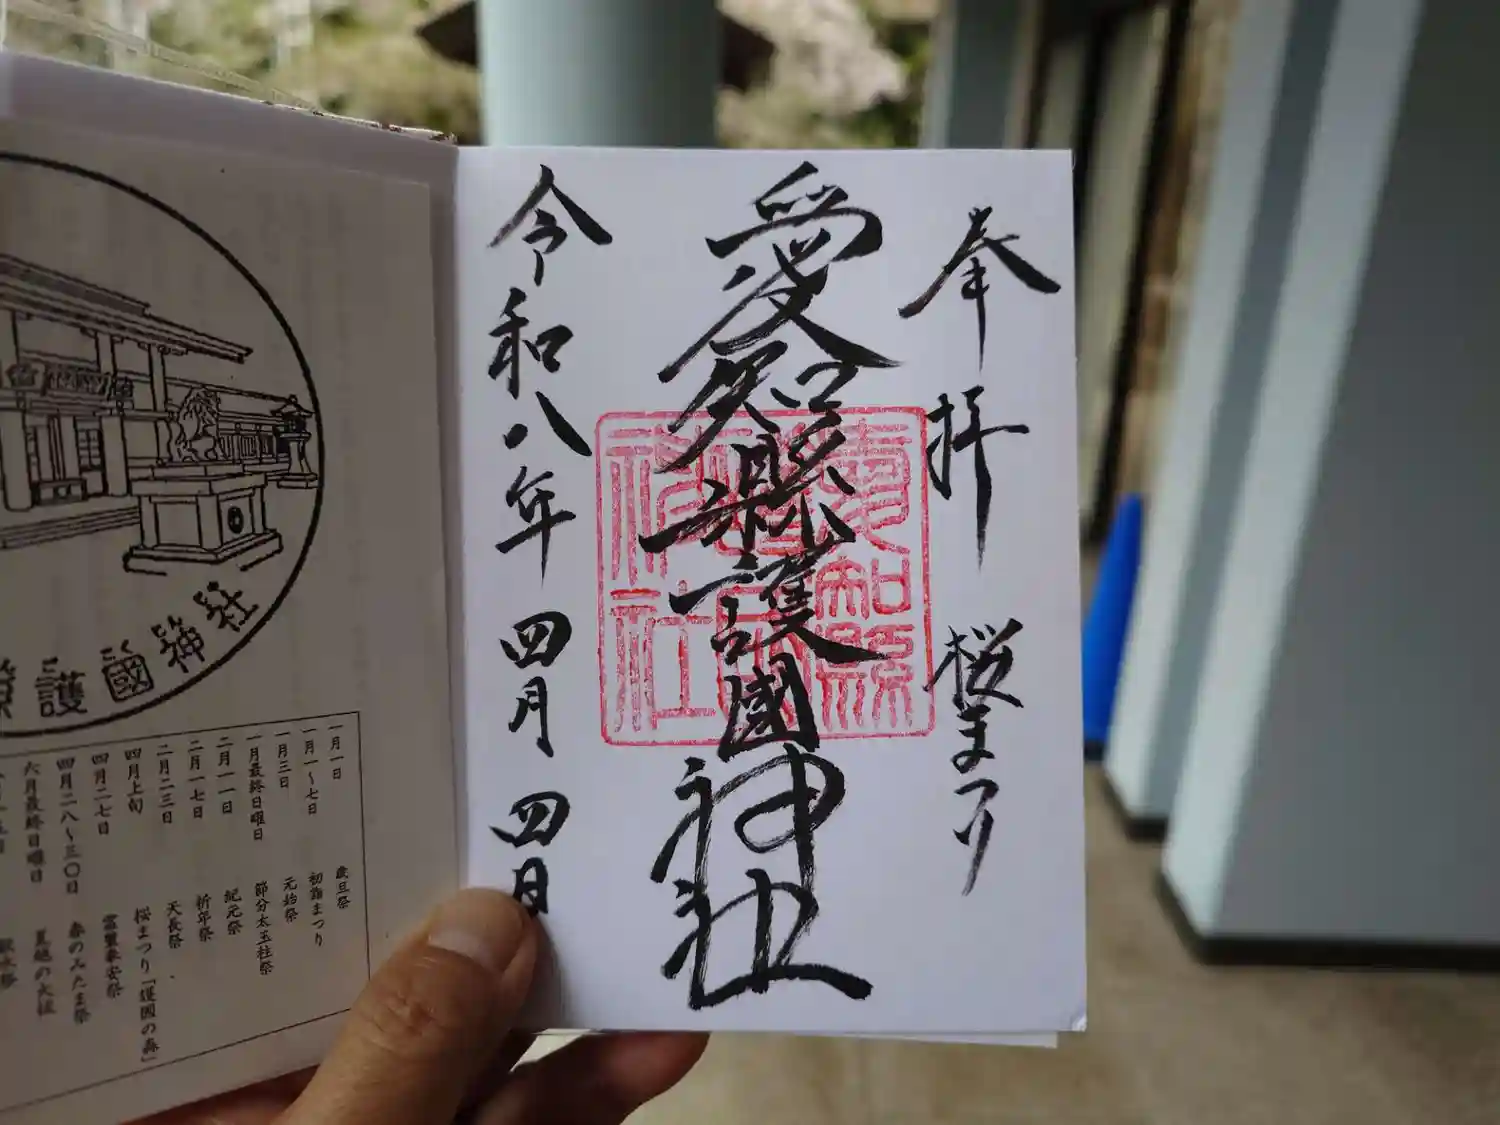 奉拝 桜まつり
愛知縣護國神社
令和八年四月四日
愛知縣
護國神社
一月一日 歳旦祭
一月一〜七日 初詣まつり
一月三日 元始祭
一月最終日曜日 節分太玉柱祭
二月一一日 紀元祭
二月一七日 祈年祭
二月二三日 天長祭
四月上旬 桜まつり「護國の森」
四月二七日 霊璽奉安祭
四月二八〜三〇日 春のみたま祭
六月最終日曜日 夏越の大祓